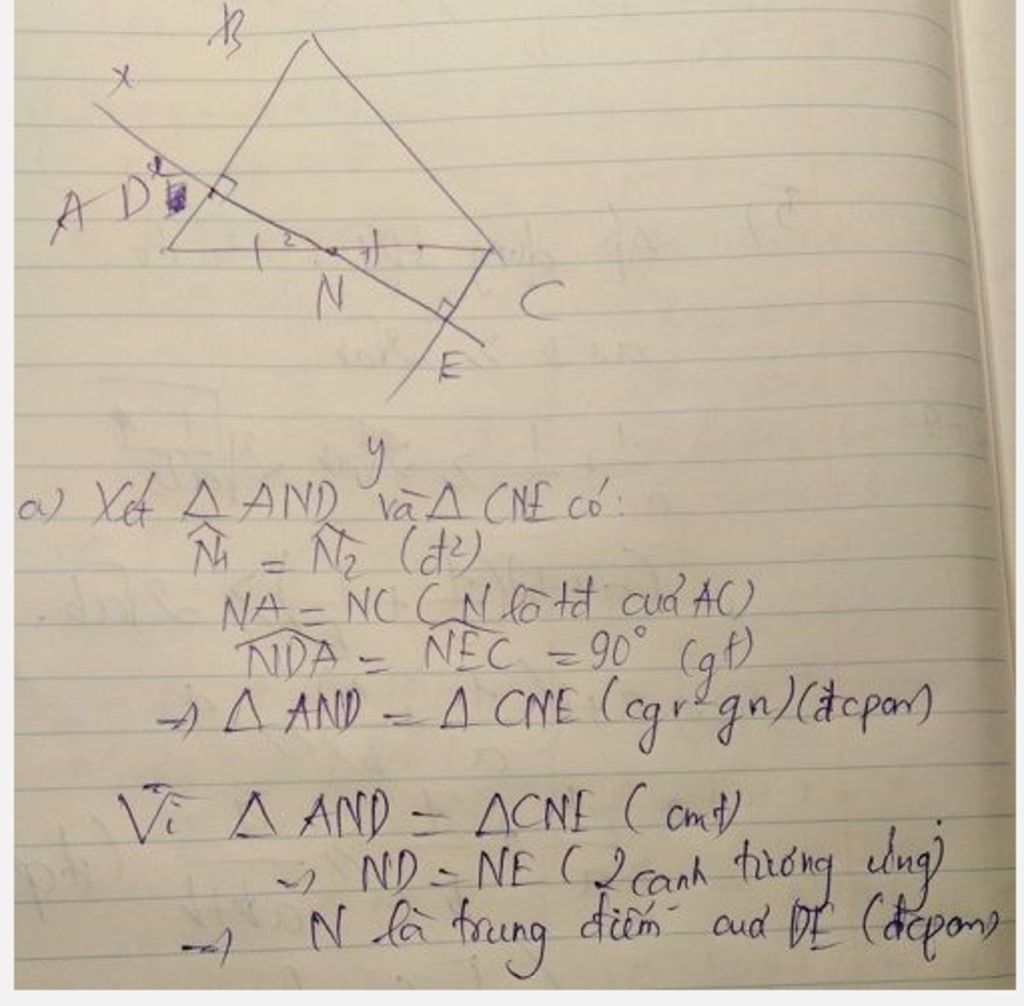 B
x
A D 1
2 1
N C
E
y
a) Xét Δ AND và Δ CNE có:
N̂1 = N̂2 (đ²)
NA = NC ( N là tđ cuả AC)
NDA = NEC = 90° (gt)
=> Δ AND = Δ CNE (cgv - gn)(đcpcm)
Vì Δ AND = ΔCNE ( cmt)
=> ND = NE ( 2 cạnh tương ứng)
=> N là trung điểm cuả DE (đcpcm)